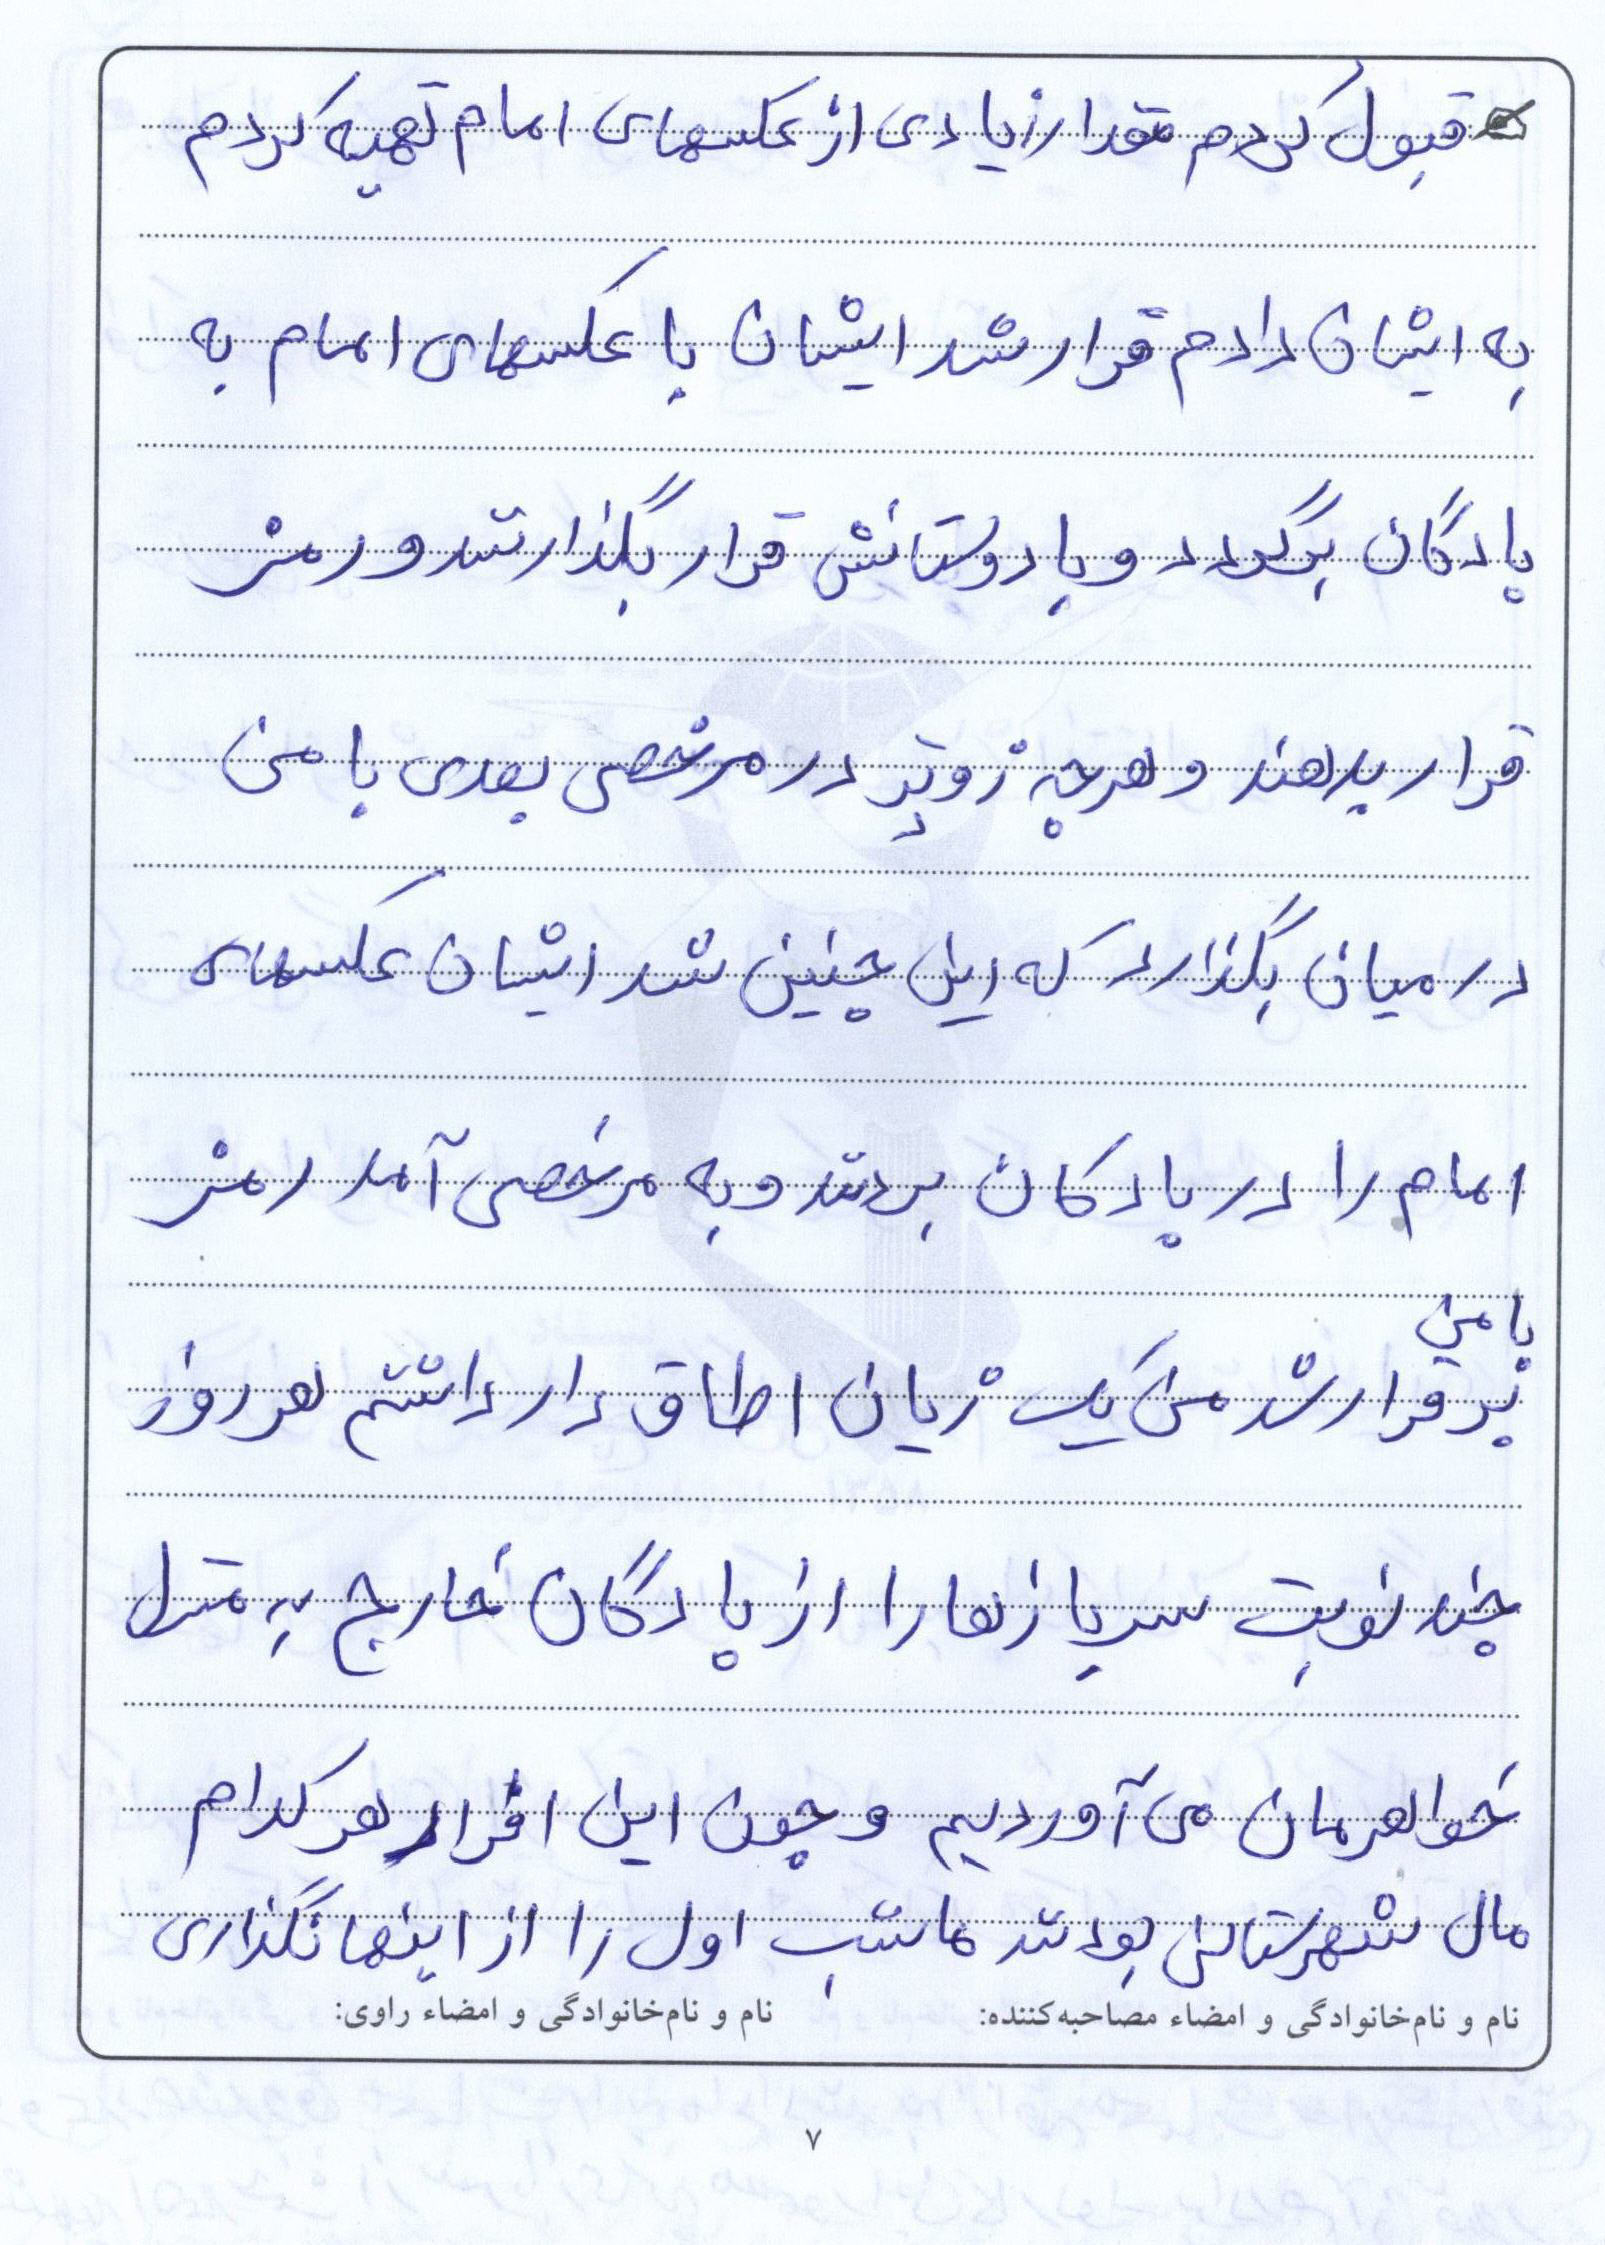 قبول کردم مقدار زیادی از عکسهای امام تهیه کردم
به ایشان دادم قرار شد ایشان با عکسهای امام به
پادگان برگردد و با دوستانش قرار بگذارند و رمز
قرار بدهند و هرچه زوتر در مرخصی بعدی با من
در میان بگذارد که این چنین شد ایشان عکسهای
امام را در پادگان بردند و به مرخصی آمد رمز
با من
برقرار شد من یک ژیان اطاق دار داشتم هر روز
چند نوبت سربازها را از پادگان خارج به منزل
خواهرمان می آوردیم و چون این افراد هر کدام
مال شهرستانی بودند ما شب اول را از اینها نگذاری
نام و نام‌خانوادگی و امضاء مصاحبه‌کننده: نام و نام‌خانوادگی و امضاء راوی:
۷